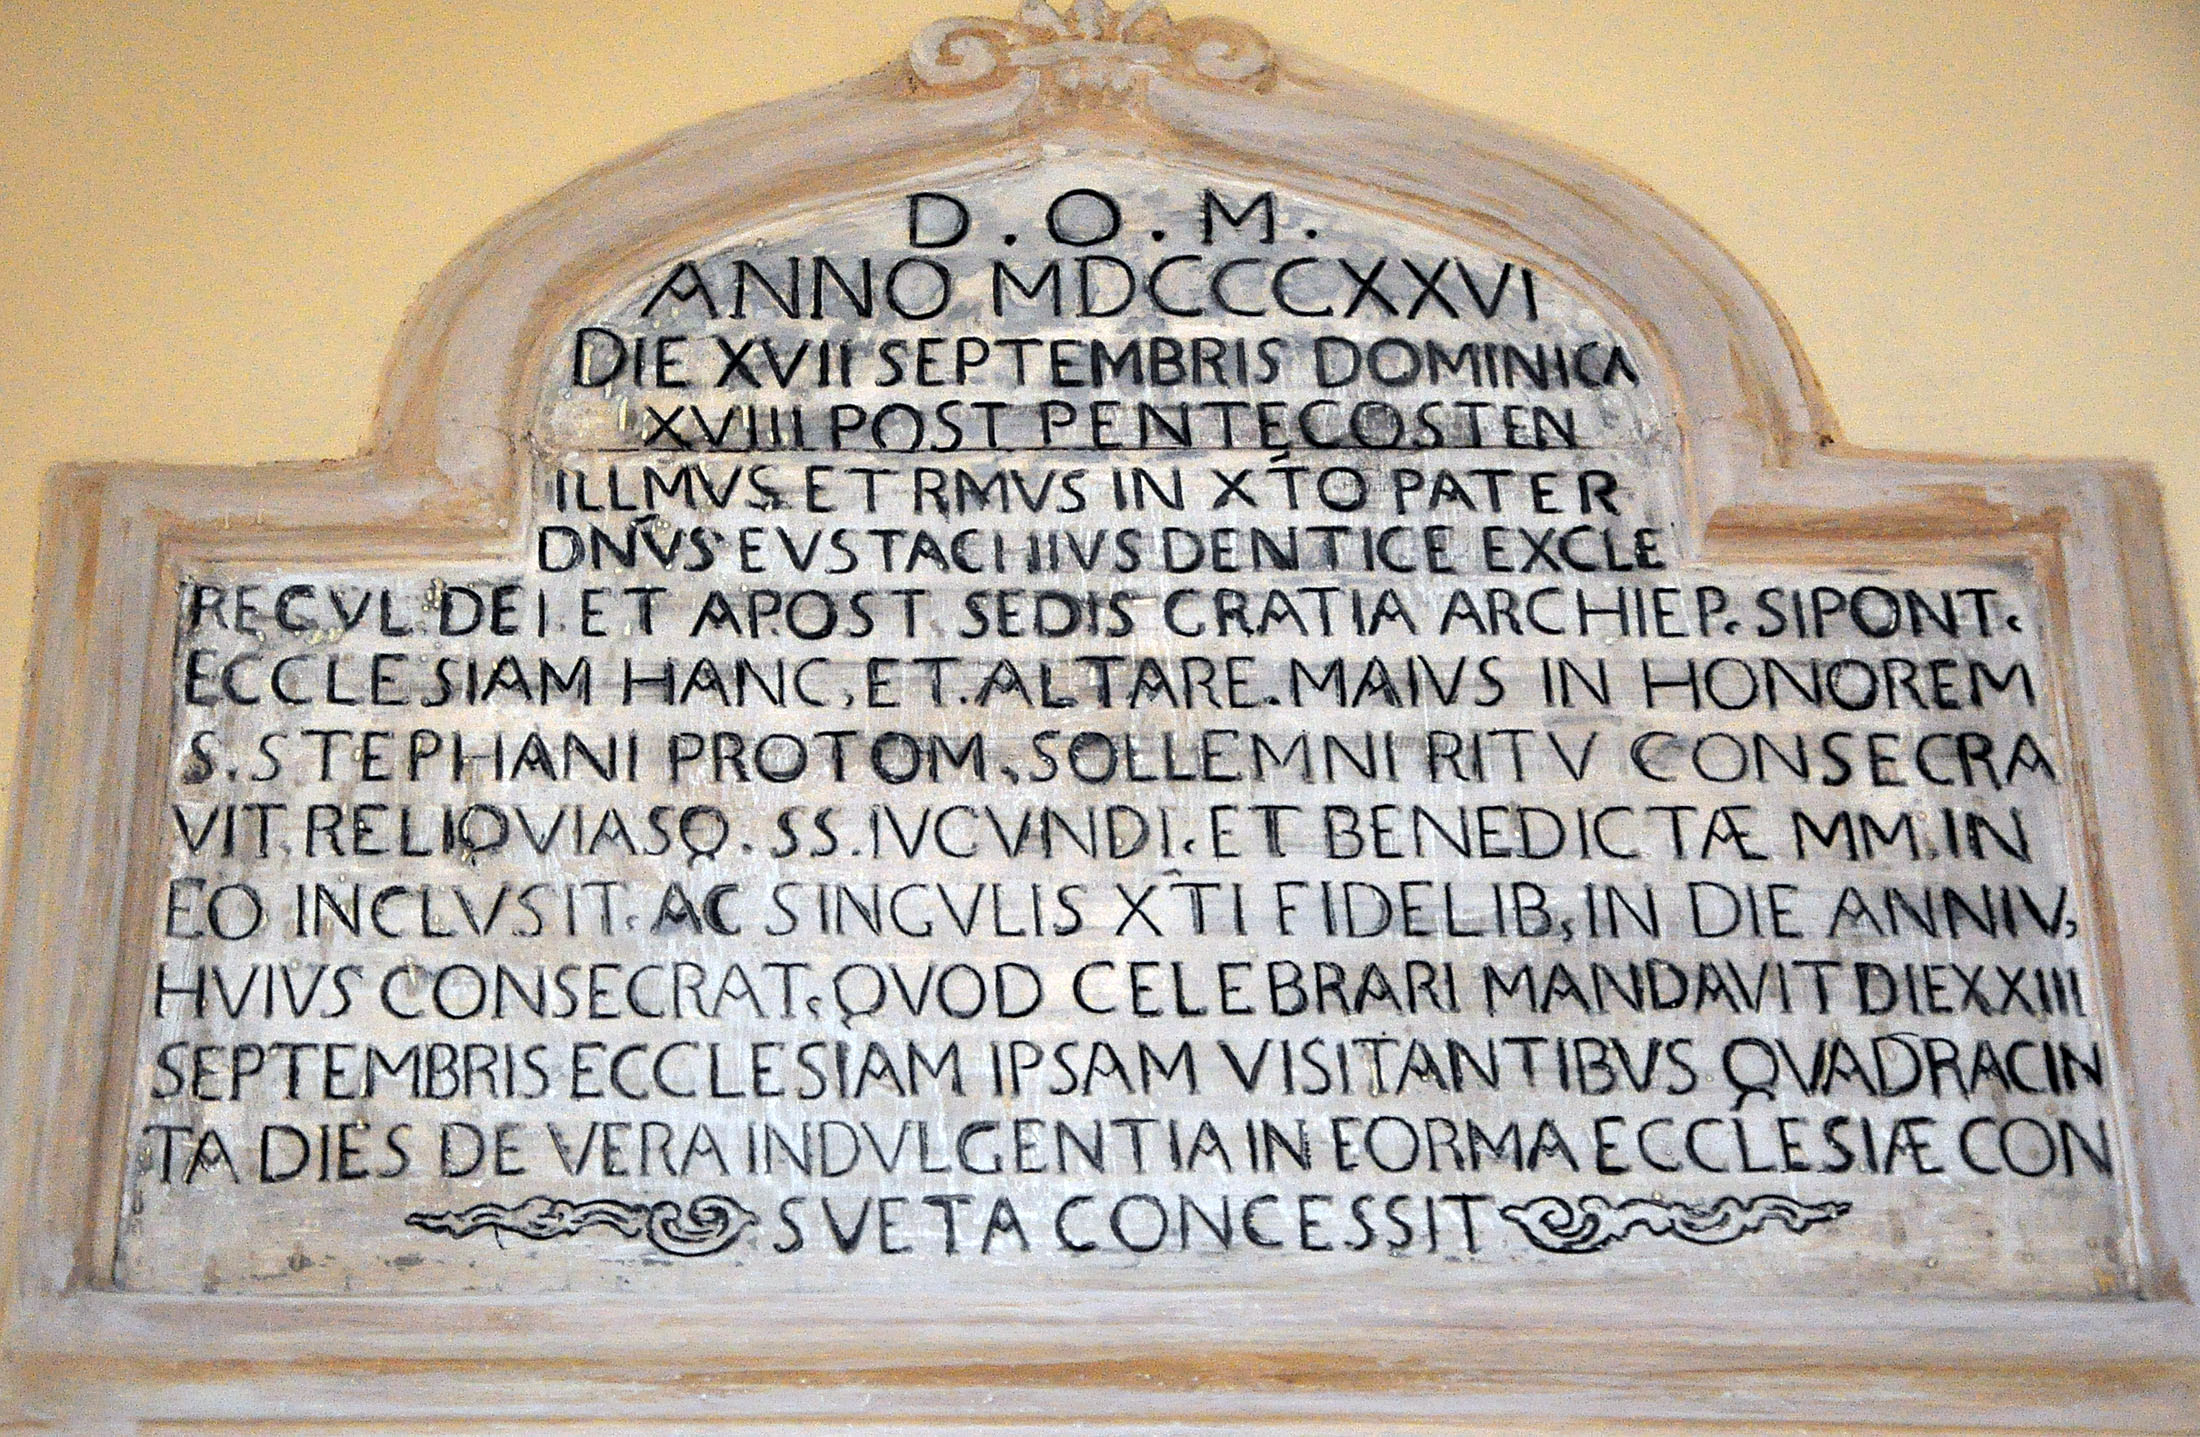 D.O.M.
ANNO MDCCCXXVI
DIE XVII SEPTEMBRIS DOMINICA
XVIII POST PENTECOSTEN
ILLMVS ET RMVS IN XTO PATER
DNVS EVSTACHIVS DENTICE EX CLE
RECVL. DEI. ET APOST. SEDIS CRATIA ARCHIEP. SIPONT.
ECCLESIAM HANC, ET. ALTARE. MAIVS IN HONOREM
S. STEPHANI PROTOM, SOLLEMNI RITV CONSECRA
VIT. RELIQVIASQ. SS. IVCVNDI. ET BENEDICTÆ MM. IN
EO INCLVSIT. AC SINGVLIS XTI FIDELIB, IN DIE ANNIV,
HVIVS CONSECRAT. QVOD CELEBRARI MANDAVIT DIE XXIII
SEPTEMBRIS ECCLESIAM IPSAM VISITANTIBVS QVADRACIN
TA DIES DE VERA INDVLGENTIA IN FORMA ECCLESIÆ CON
SVETA CONCESSIT